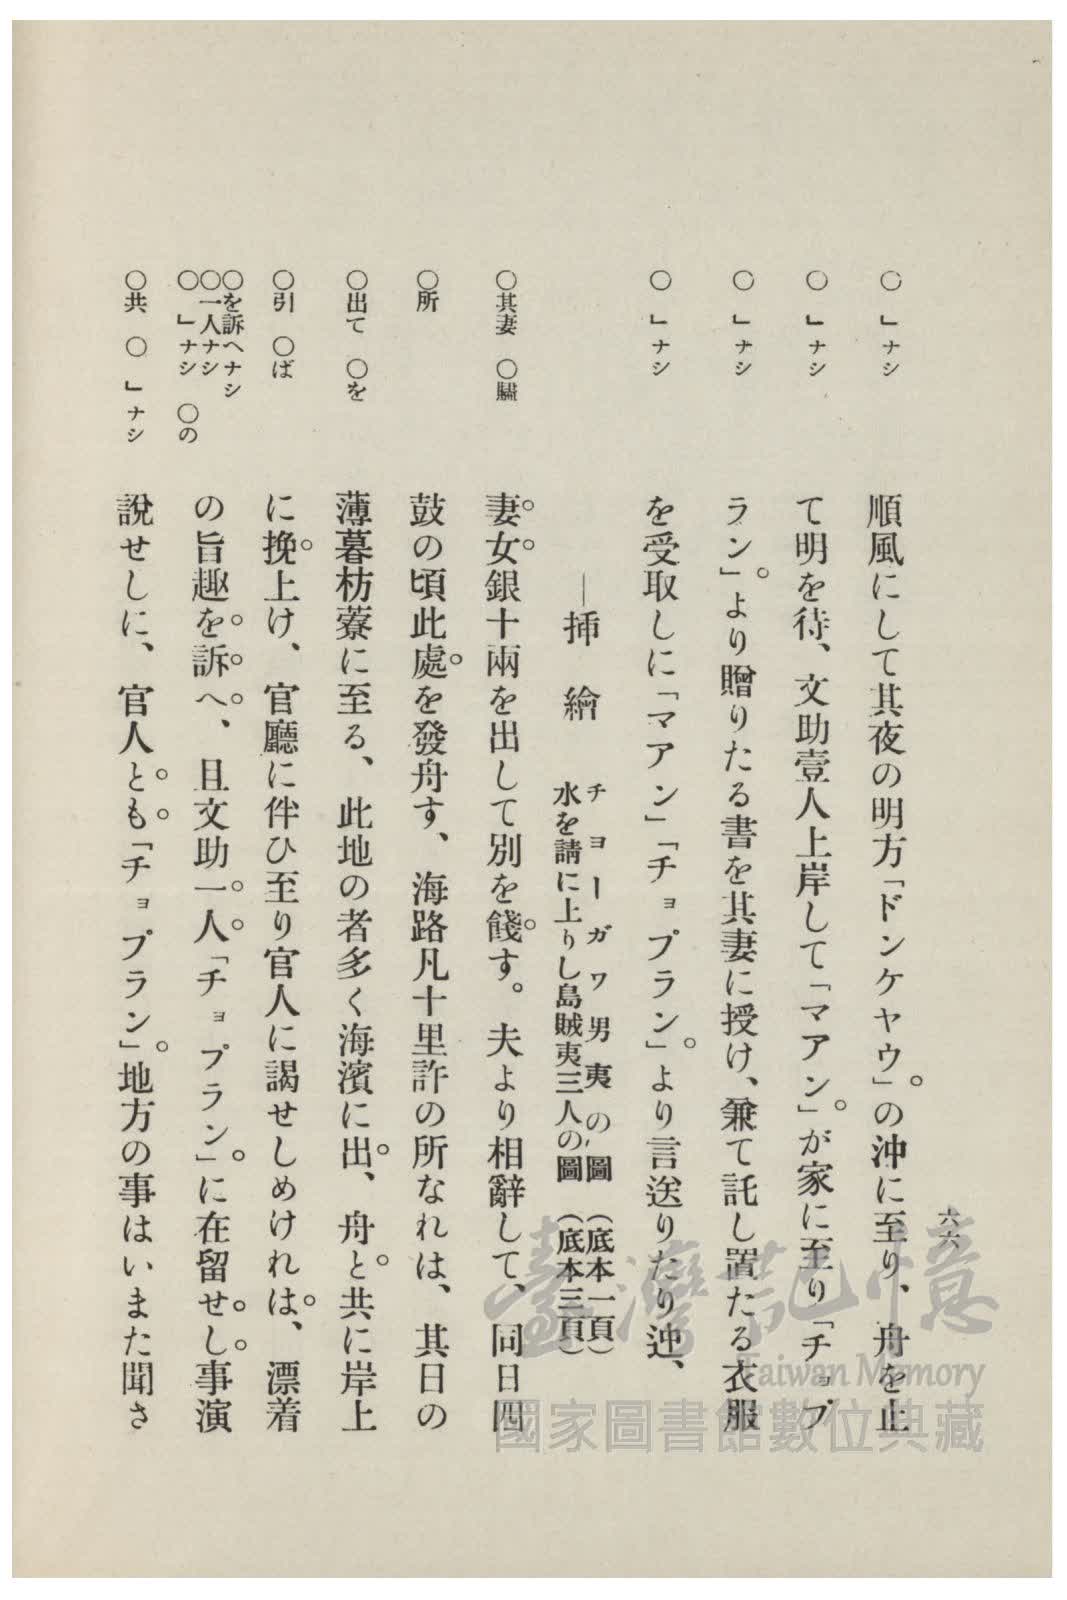 六六
○」ナシ
順風にして其夜の明方「ドンケヤウ」の沖に至り、舟を止
○」ナシ
て明を待、文助壹人上岸して「マアン」が家に至り「チョプ
○」ナシ
ラン」より贈りたる書を其妻に授け、兼て託し置たる衣服
○」ナシ
を受取しに「マアン」「チョプラン」より言送りたり迚、
—挿繪 チヨーガワ男夷の圖(底本一頁)
水を請に上りし島賊夷三人の圖(底本三頁)
○其妻 ○驌
妻女銀十兩を出して別を餞す。夫より相辭して、同日四
○所
鼓の頃此處を發舟す、海路凡十里許の所なれは、其日の
○出て ○を
薄暮枋藔に至る、此地の者多く海濱に出、舟と共に岸上
○引 ○ば
に挽上け、官廳に伴ひ至り官人に謁せしめけれは、漂着
○を訴へナシ
○一人ナシ
○」ナシ ○の
の旨趣を訴へ、且文助一人「チョプラン」に在留せし事演
○共 ○」ナシ
說せしに、官人とも「チョプラン」地方の事はいまた聞さ
臺灣記憶
Taiwan Memory
國家圖書館數位典藏